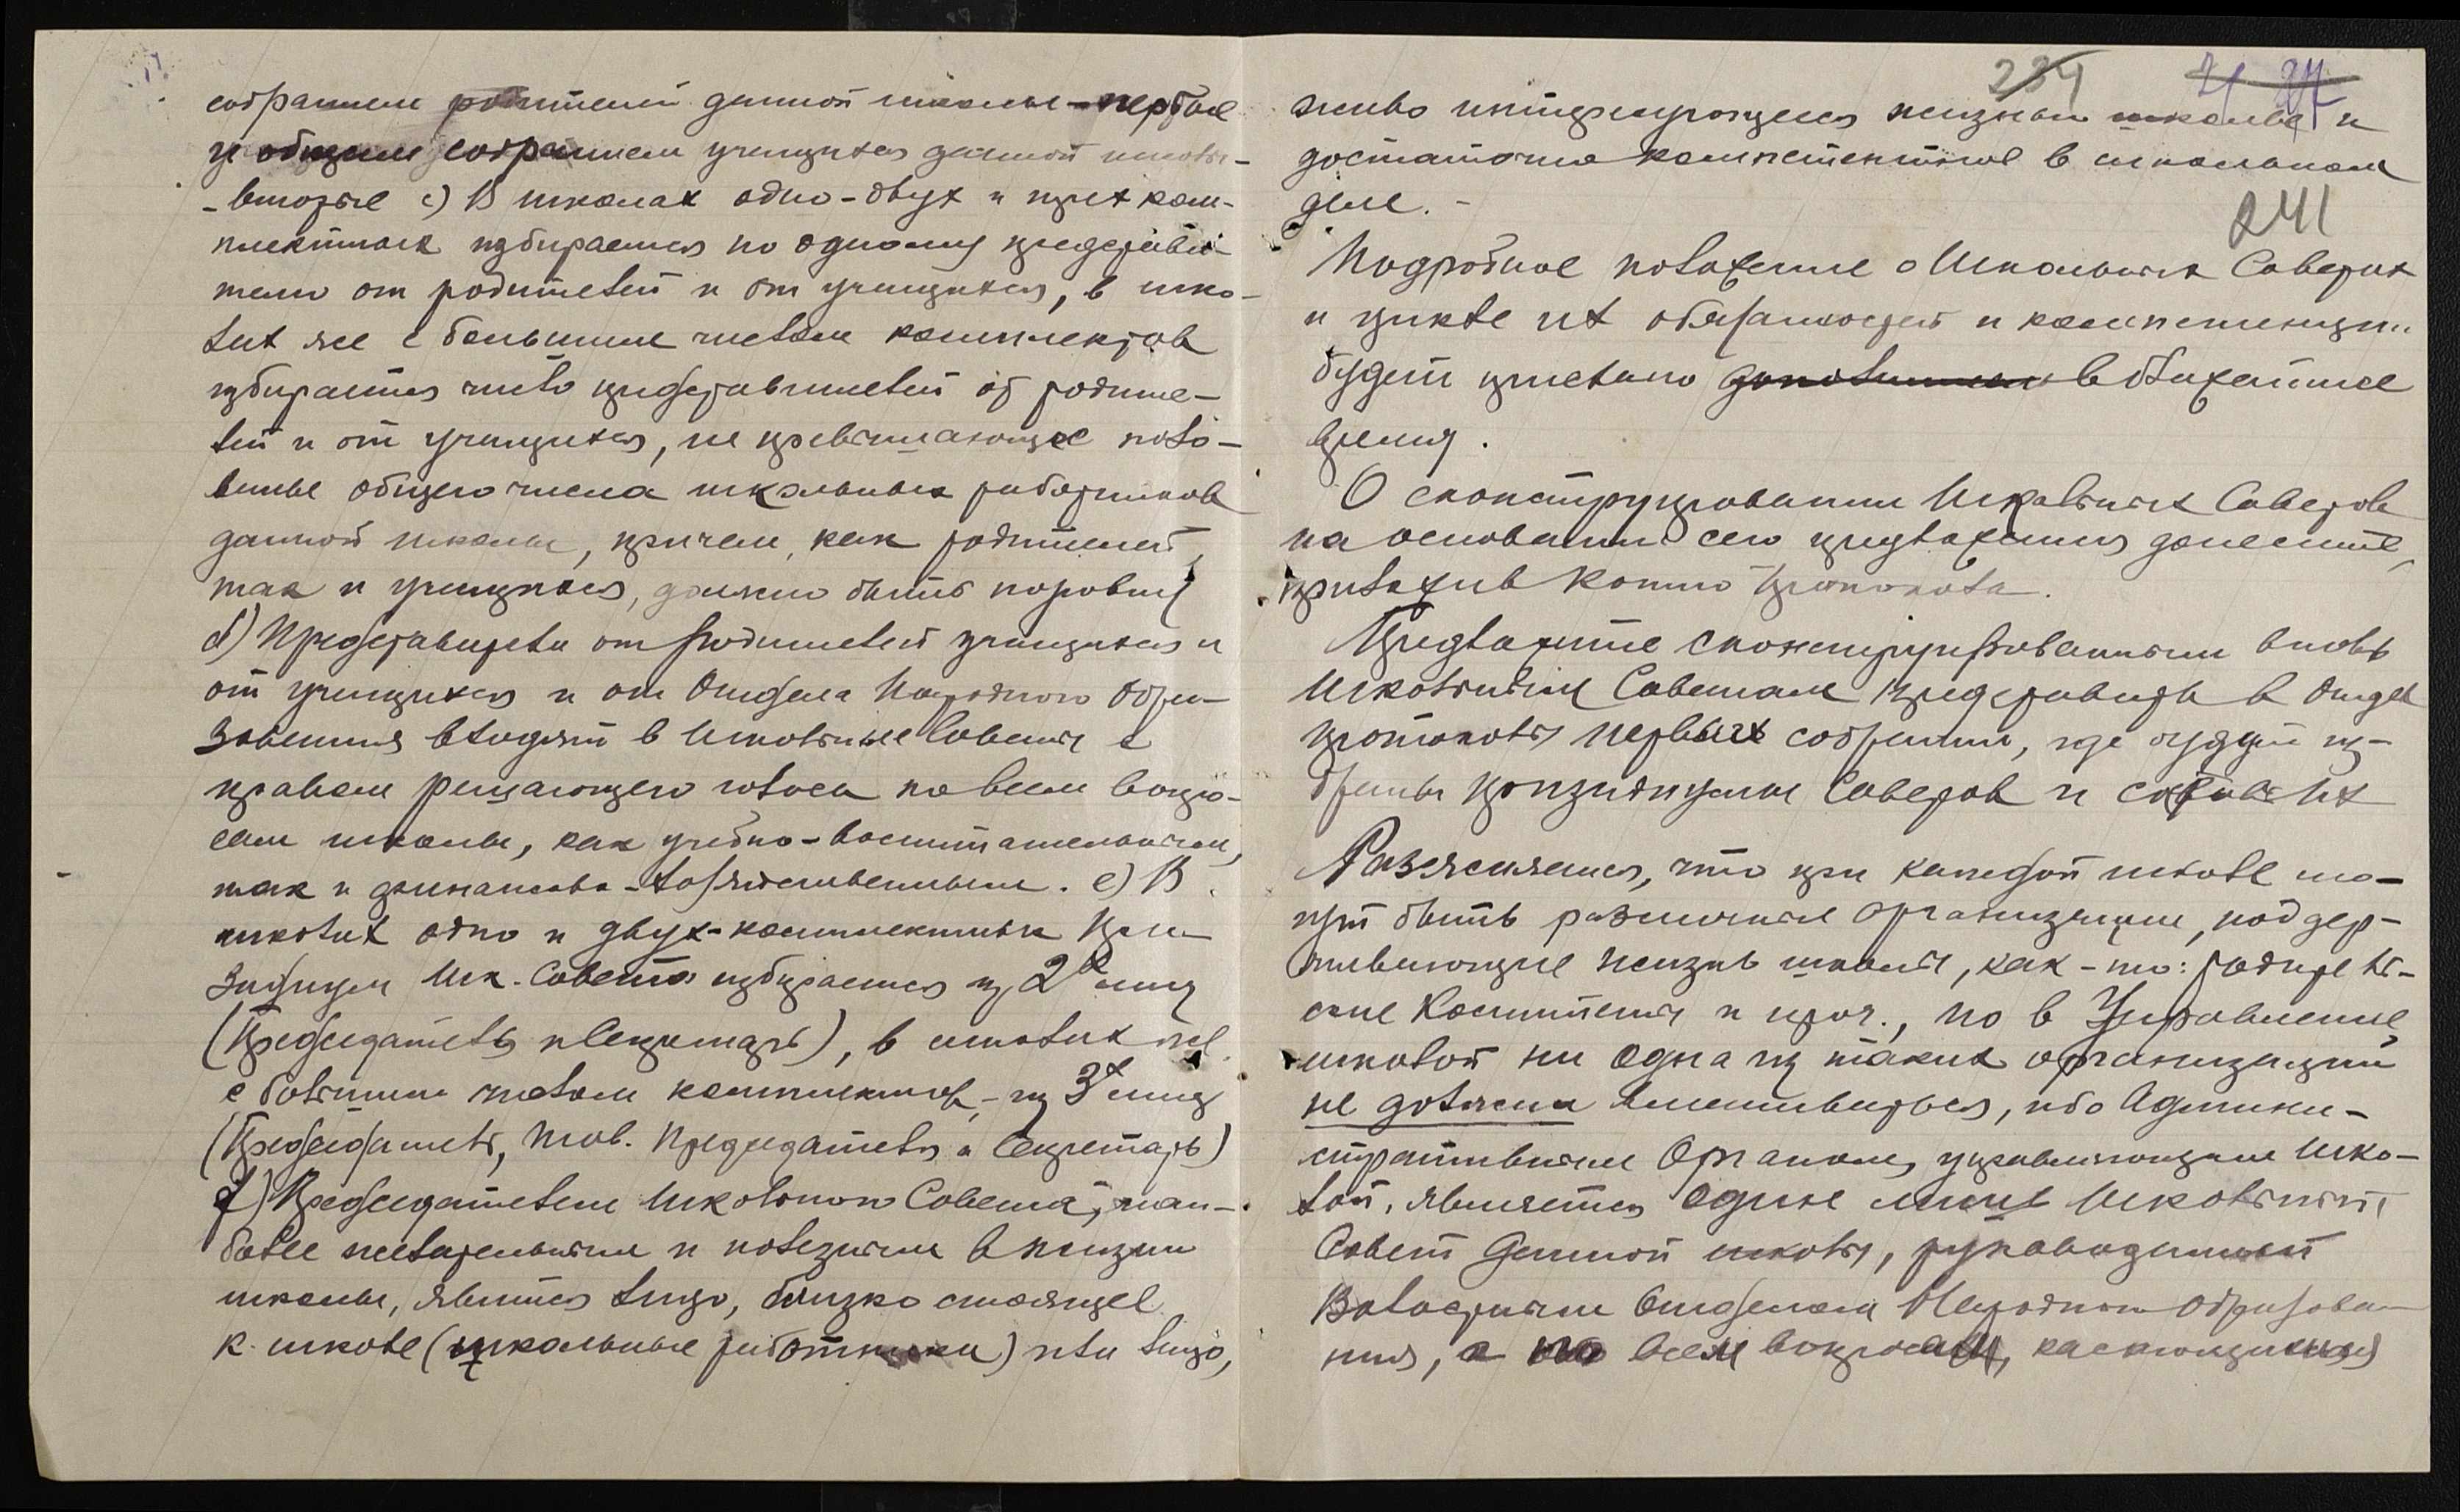 собранием родителей данной школы - первые
и общим собранием учащихся данной школы -
- вторые с) В школах одно-двух и трех ком-
плектных избирается по одному представи-
телю от родителей и от учащихся, в шко-
лах же с большим числом комплектов
избирается число представителей от родите-
лей и от учащихся, не превышающее поло-
вины общего числа школьных работников
данной школы, причем, как родителей,
так и учащихся, должно быть поровну
d) Представители от родителей учащихся и
от учащихся и от Отдела Народного Обра-
зования входят в Школьные Советы с
правом решающего голоса по всем вопро-
сам школы, как учебно-воспитательным,
так и финансово-хозяйственным. е) В
школах одно и двух-комплектных Пре-
зидиум Шк. Совета избирается из 2х лиц
(Председатель и Секретарь), в школах же
с большим числом комплектов, - из 3х лиц
(Председатель, Тов. Председателя и Секретарь)
f) Председателем Школьного Совета, наи-
более желательным и полезным в жизни
школы, явится лицо, близко стоящее
к школе (школьные работники) или лицо,
234
241
живо интересующееся жизнью школы и
достаточно компетентное в школьном
деле. -
Подробное положение о Школьных Советах
и цикле их обязанностей и компетенции
будет прислано в ближайшее
время.
О сконструировании Школьных Советов
на основании сего предложения донесите,
приложив копию протокола.
Предложите сконструированным вновь
Школьным Советам представить в Отдел
протоколы первых собраний, где будут из-
браны президиумы Советов и состав их
Разъясняется, что при каждой школе мо-
гут быть различные организации, поддер-
живающие жизнь школы, как-то: родитель-
ские Комитеты и проч., но в Управление
школой ни одна из таких организаций
не должна вмешиваться, ибо Админи-
стративным Органом, управляющим Шко-
лой, является один лишь Школьный
Совет данной школы, руководимый
Волостным Отделом Народного Образова-
ния, а по всем вопросам, касающимся